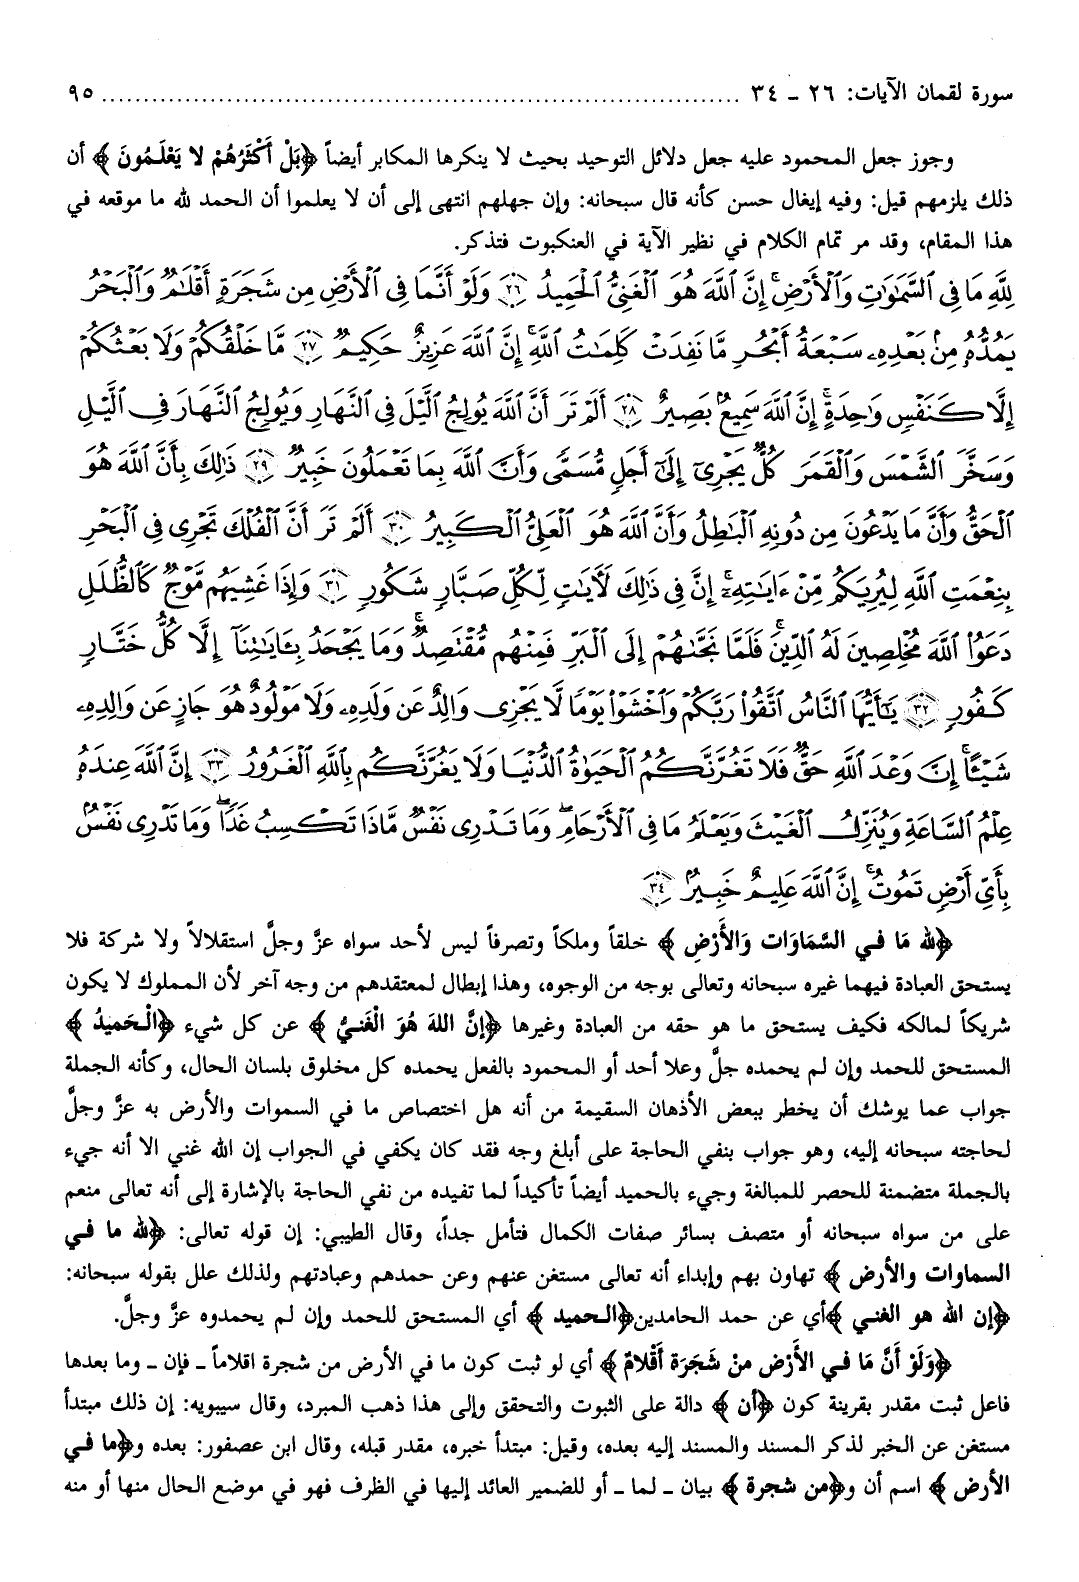 سورة لقمان الآيات: ٢٦ ـ ٣٤ ........................................................................... ٩٥
وجوز جعل المحمود عليه جعل دلائل التوحيد بحيث لا ينكرها المكابر أيضاً ﴿بَلْ أَكْثَرُهُمْ لا يَعْلَمُونَ﴾ أن
ذلك يلزمهم قيل: وفيه إيغال حسن كأنه قال سبحانه: وإن جهلهم انتهى إلى أن لا يعلموا أن الحمد لله ما موقعه في
هذا المقام، وقد مر تمام الكلام في نظير الآية في العنكبوت فتذكر.
لِلَّهِ مَا فِي ٱلسَّمَٰوَٰتِ وَٱلْأَرْضِ ۚ إِنَّ ٱللَّهَ هُوَ ٱلْغَنِيُّ ٱلْحَمِيدُ ٢٦ وَلَوْ أَنَّمَا فِي ٱلْأَرْضِ مِن شَجَرَةٍ أَقْلَٰمٌ وَٱلْبَحْرُ
يَمُدُّهُۥ مِنۢ بَعْدِهِۦ سَبْعَةُ أَبْحُرٍ مَّا نَفِدَتْ كَلِمَٰتُ ٱللَّهِ ۗ إِنَّ ٱللَّهَ عَزِيزٌ حَكِيمٌ ٢٧ مَّا خَلْقُكُمْ وَلَا بَعْثُكُمْ
إِلَّا كَنَفْسٍ وَٰحِدَةٍ ۗ إِنَّ ٱللَّهَ سَمِيعٌۢ بَصِيرٌ ٢٨ أَلَمْ تَرَ أَنَّ ٱللَّهَ يُولِجُ ٱلَّيْلَ فِي ٱلنَّهَارِ وَيُولِجُ ٱلنَّهَارَ فِي ٱلَّيْلِ
وَسَخَّرَ ٱلشَّمْسَ وَٱلْقَمَرَ كُلٌّ يَجْرِيٓ إِلَىٰٓ أَجَلٍ مُّسَمًّى وَأَنَّ ٱللَّهَ بِمَا تَعْمَلُونَ خَبِيرٌ ٢٩ ذَٰلِكَ بِأَنَّ ٱللَّهَ هُوَ
ٱلْحَقُّ وَأَنَّ مَا يَدْعُونَ مِن دُونِهِ ٱلْبَٰطِلُ وَأَنَّ ٱللَّهَ هُوَ ٱلْعَلِيُّ ٱلْكَبِيرُ ٣٠ أَلَمْ تَرَ أَنَّ ٱلْفُلْكَ تَجْرِي فِي ٱلْبَحْرِ
بِنِعْمَتِ ٱللَّهِ لِيُرِيَكُم مِّنْ ءَايَٰتِهِۦٓ ۚ إِنَّ فِي ذَٰلِكَ لَءَايَٰتٍ لِّكُلِّ صَبَّارٍ شَكُورٍ ٣١ وَإِذَا غَشِيَهُم مَّوْجٌ كَٱلظُّلَلِ
دَعَوُا۟ ٱللَّهَ مُخْلِصِينَ لَهُ ٱلدِّينَ ۖ فَلَمَّا نَجَّىٰهُمْ إِلَى ٱلْبَرِّ فَمِنْهُم مُّقْتَصِدٌ ۚ وَمَا يَجْحَدُ بِـَٔايَٰتِنَآ إِلَّا كُلُّ خَتَّارٍ
كَفُورٍ ٣٢ يَٰٓأَيُّهَا ٱلنَّاسُ ٱتَّقُوا۟ رَبَّكُمْ وَٱخْشَوْا۟ يَوْمًا لَّا يَجْزِي وَالِدٌ عَن وَلَدِهِۦ وَلَا مَوْلُودٌ هُوَ جَازٍ عَن وَالِدِهِۦ
شَيْـًٔا ۚ إِنَّ وَعْدَ ٱللَّهِ حَقٌّ ۖ فَلَا تَغُرَّنَّكُمُ ٱلْحَيَوٰةُ ٱلدُّنْيَا وَلَا يَغُرَّنَّكُم بِٱللَّهِ ٱلْغَرُورُ ٣٣ إِنَّ ٱللَّهَ عِندَهُۥ
عِلْمُ ٱلسَّاعَةِ وَيُنَزِّلُ ٱلْغَيْثَ وَيَعْلَمُ مَا فِي ٱلْأَرْحَامِ ۖ وَمَا تَدْرِي نَفْسٌ مَّاذَا تَكْسِبُ غَدًا ۖ وَمَا تَدْرِي نَفْسٌۢ
بِأَيِّ أَرْضٍ تَمُوتُ ۚ إِنَّ ٱللَّهَ عَلِيمٌ خَبِيرٌۢ ٣٤
﴿لله مَا في السَّمَاوَات وَالأَرْضِ﴾ خلقاً وملكاً وتصرفاً ليس لأحد سواه عزَّ وجلَّ استقلالاً ولا شركة فلا
يستحق العبادة فيهما غيره سبحانه وتعالى بوجه من الوجوه، وهذا إبطال لمعتقدهم من وجه آخر لأن المملوك لا يكون
شريكاً لمالكه فكيف يستحق ما هو حقه من العبادة وغيرها ﴿إِنَّ اللهَ هُوَ الْغَنيُّ﴾ عن كل شيء ﴿الْحَميدُ﴾
المستحق للحمد وإن لم يحمده جلَّ وعلا أحد أو المحمود بالفعل يحمده كل مخلوق بلسان الحال، وكأنه الجملة
جواب عما يوشك أن يخطر ببعض الأذهان السقيمة من أنه هل اختصاص ما في السموات والأرض به عزَّ وجلَّ
لحاجته سبحانه إليه، وهو جواب بنفي الحاجة على أبلغ وجه فقد كان يكفي في الجواب إن الله غني الا أنه جيء
بالجملة متضمنة للحصر للمبالغة وجيء بالحميد أيضاً تأكيداً لما تفيده من نفي الحاجة بالإشارة إلى أنه تعالى منعم
على من سواه سبحانه أو متصف بسائر صفات الكمال فتأمل جداً، وقال الطيبي: إن قوله تعالى: ﴿لله ما في
السماوات والأرض﴾ تهاون بهم وإبداء أنه تعالى مستغن عنهم وعن حمدهم وعبادتهم ولذلك علل بقوله سبحانه:
﴿إن الله هو الغني﴾أي عن حمد الحامدين﴿الحميد﴾ أي المستحق للحمد وإن لم يحمدوه عزَّ وجلَّ.
﴿وَلَوْ أَنَّ مَا في الأَرْض منْ شَجَرَة أَقْلامٌ﴾ أي لو ثبت كون ما في الأرض من شجرة اقلاماً ـ فإن ـ وما بعدها
فاعل ثبت مقدر بقرينة كون ﴿أن﴾ دالة على الثبوت والتحقق وإلى هذا ذهب المبرد، وقال سيبويه: إن ذلك مبتدأ
مستغن عن الخبر لذكر المسند والمسند إليه بعده، وقيل: مبتدأ خبره، مقدر قبله، وقال ابن عصفور: بعده و﴿ما في
الأرض﴾ اسم أن و﴿من شجرة﴾ بيان ـ لما ـ أو للضمير العائد إليها في الظرف فهو في موضع الحال منها أو منه